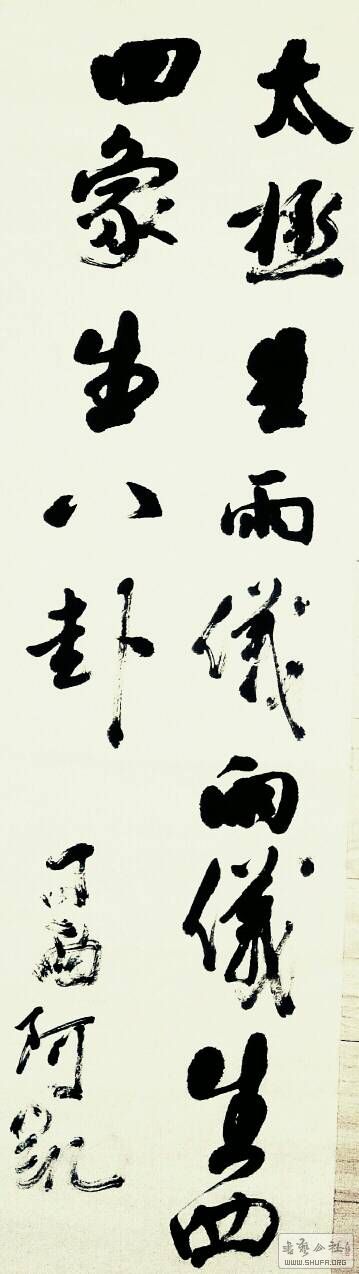 太極生兩儀兩儀生四
四象生八卦
丁酉阿凱
书艺公社
WWW.SHUFA.ORG